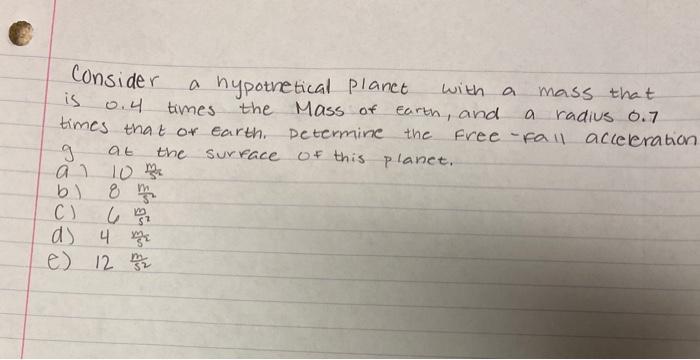 Consider a hypothetical planet with a mass that
is 0.4 times the Mass of earth, and a radius 0.7
times that of earth. Determine the free-fall acceleration
g at the surface of this planet.
a) 10 m/s²
b) 8 m/s²
c) 6 m/s²
d) 4 m/s²
e) 12 m/s²